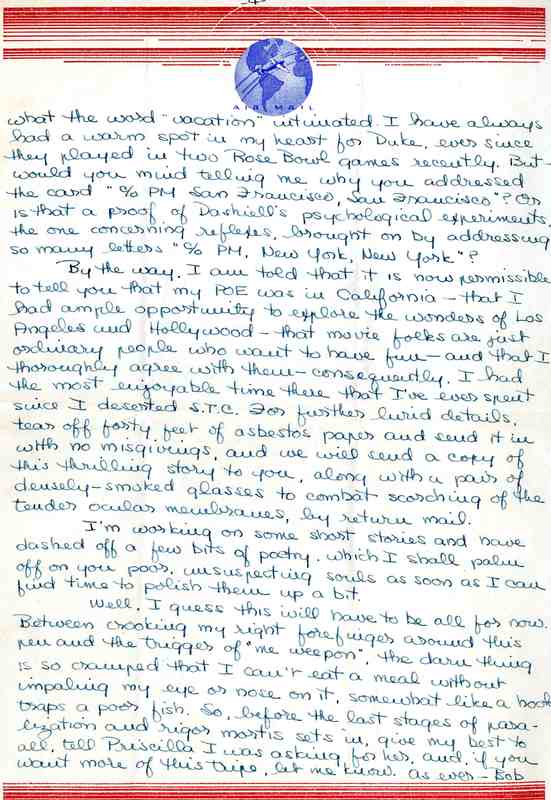 -4-
AIR MAIL
what the word "vacation" intimated. I have always
had a warm spot in my heart for Duke, ever since
they played in two Rose Bowl games recently. But-
would you mind telling me why you addressed
the card "c/o PM San Francisco, San Francisco"? Or
is that a proof of Dashiell's psychological experiments,
the one concerning reflexes, brought on by addressing
so many letters "c/o PM, New York, New York"?
By the way, I am told that it is now permissible
to tell you that my POE was in California - that I
had ample opportunity to explore the wonders of Los
Angeles and Hollywood - that movie folks are just
ordinary people who want to have fun - and that I
thoroughly agree with them - consequently, I had
the most enjoyable time there that I've ever spent
since I deserted S.T.C. For further lurid details,
tear off forty feet of asbestos paper and send it in
with no misgivings, and we will send a copy of
this thrilling story to you, along with a pair of
densely-smoked glasses to combat scorching of the
tender ocular membranes, by return mail.
I'm working on some short stories and have
dashed off a few bits of poetry, which I shall palm
off on you poor, unsuspecting souls as soon as I can
find time to polish them up a bit.
Well, I guess this will have to be all for now.
Between crooking my right forefinger around this
pen and the trigger of "me weepon", the darn thing
is so cramped that I can't eat a meal without
impaling my eye or nose on it, somewhat like a hook
traps a poor fish. So, before the last stages of para-
lization and rigor mortis sets in, give my best to
all, tell Priscilla I was asking for her, and, if you
want more of this tripe, let me know. As ever - Bob